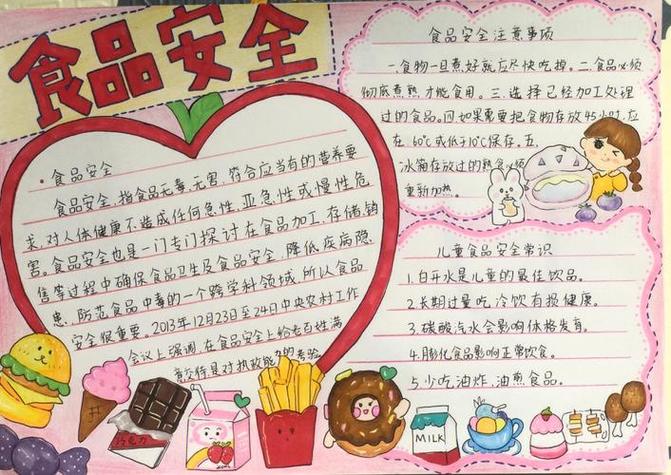 食品安全
·食品安全
食品安全,指食品无毒、无害,符合应当有的营养要
求,对人体健康不造成任何急性、亚急性或慢性危
害。食品安全也是一门专门探讨在食品加工、存储、销
售等过程中确保食品卫生及食品安全,降低疾病隐
患,防范食品中毒的一个跨学科领域,所以食品
安全很重要。2013年12月23日至24日中央农村工作
会议上强调,在食品安全上给老百姓满
意交待是对执政能力的考验
食品安全注意事项
一、食物一旦煮好就应尽快吃掉。二、食品必须
彻底煮熟才能食用。三、选择已经加工处理
过的食品。四如果需要把食物存放4-5小时,应
在60℃或低于10℃保存。五、
冰箱存放过的熟食必须
重新加热。
儿童食品安全常识
1.白开水是儿童的最佳饮品。
2.长期过量吃冷饮有损健康。
3.碳酸汽水会影响体格发育。
4.膨化食品影响正常饮食。
5.少吃油炸、油煎食品。
巧克力
MILK